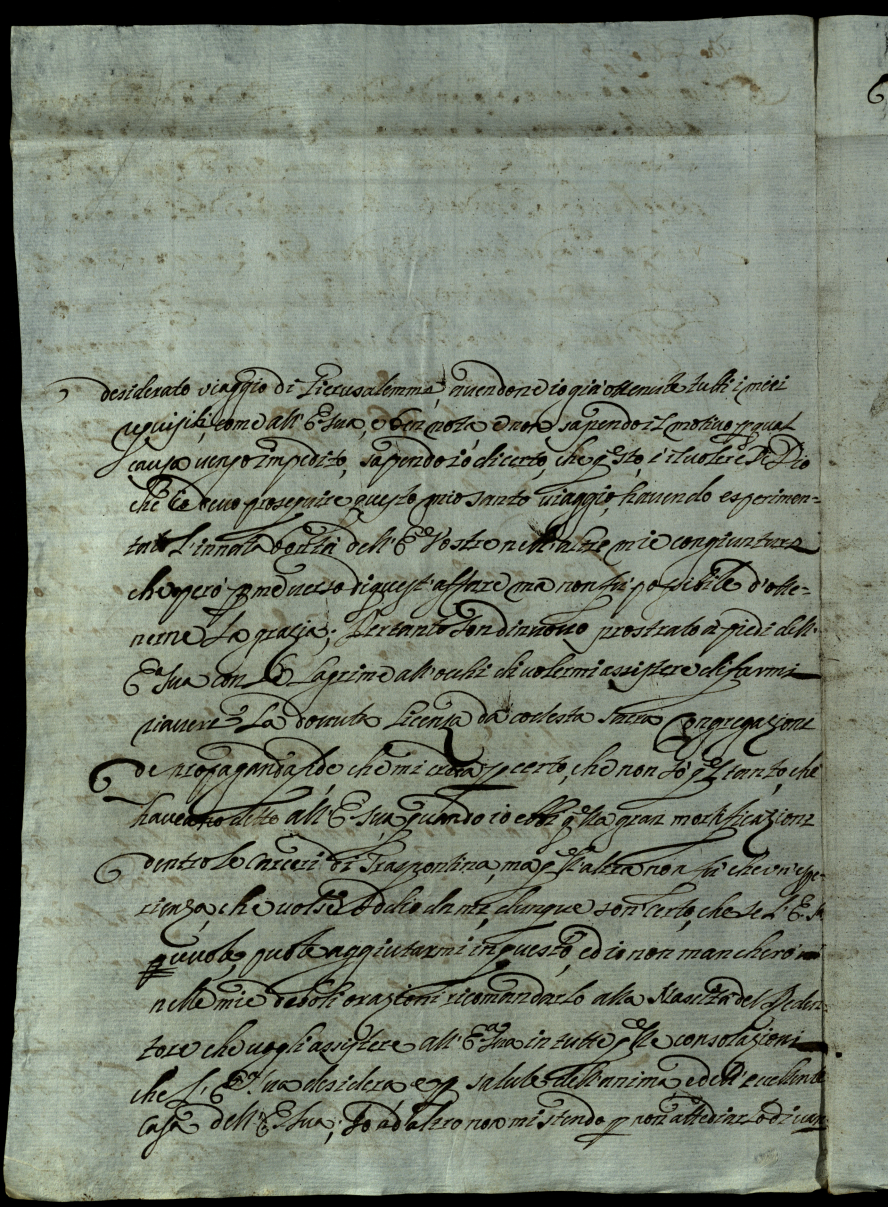 desiderato viaggio di Gierusalemma, avendone io gia' ottenute tutti i miei
requisiti, come all' E. Sua, e ben nota e non sapendo il motivo p qual
causa vengo impedito, sapendo io di certo, che qsto, e' il volere De Dio
che io devo proseguire questo mio santo viaggio, havendo esperimen=
tato L'innata bontà dell' E. Vostre nell'altre mie congiunture
che operò p me verso di quest' affare ma non fu possibile d'otte=
nerne La grazia; Pertanto son di nuovo prostrato a piedi dell'
E. Sua con Le Lagrime all' occhi di volermi assistere di farmi
riavere La dovuta Licenza da codesta Sacra Congregazione
de propaganda fide che mi creda p certo, che non fò qll tanto, che
haveano detto all' E. Sua, quando io ebbi qlla gran mortificazione
dentro le Carceri di Traspontina, ma qll' altra non fu che un' espe=
rienza, che volse Iddio da me, dunque son certo, che se L' E. Sa
vuole, puole aggiutarmi in questo, ed io non mancherò
nelle mie deboli orazioni ricomandarlo alla Nascita del Reden=
tore che vogli assistere all' E. Sua in tutte qlle consolazioni
che L' E. Sua desidera e p salute dell' anima, e dell' Eccellente
Casa dell' E. Sua; Io ad altro non mi stendo p non attediarlo di van=